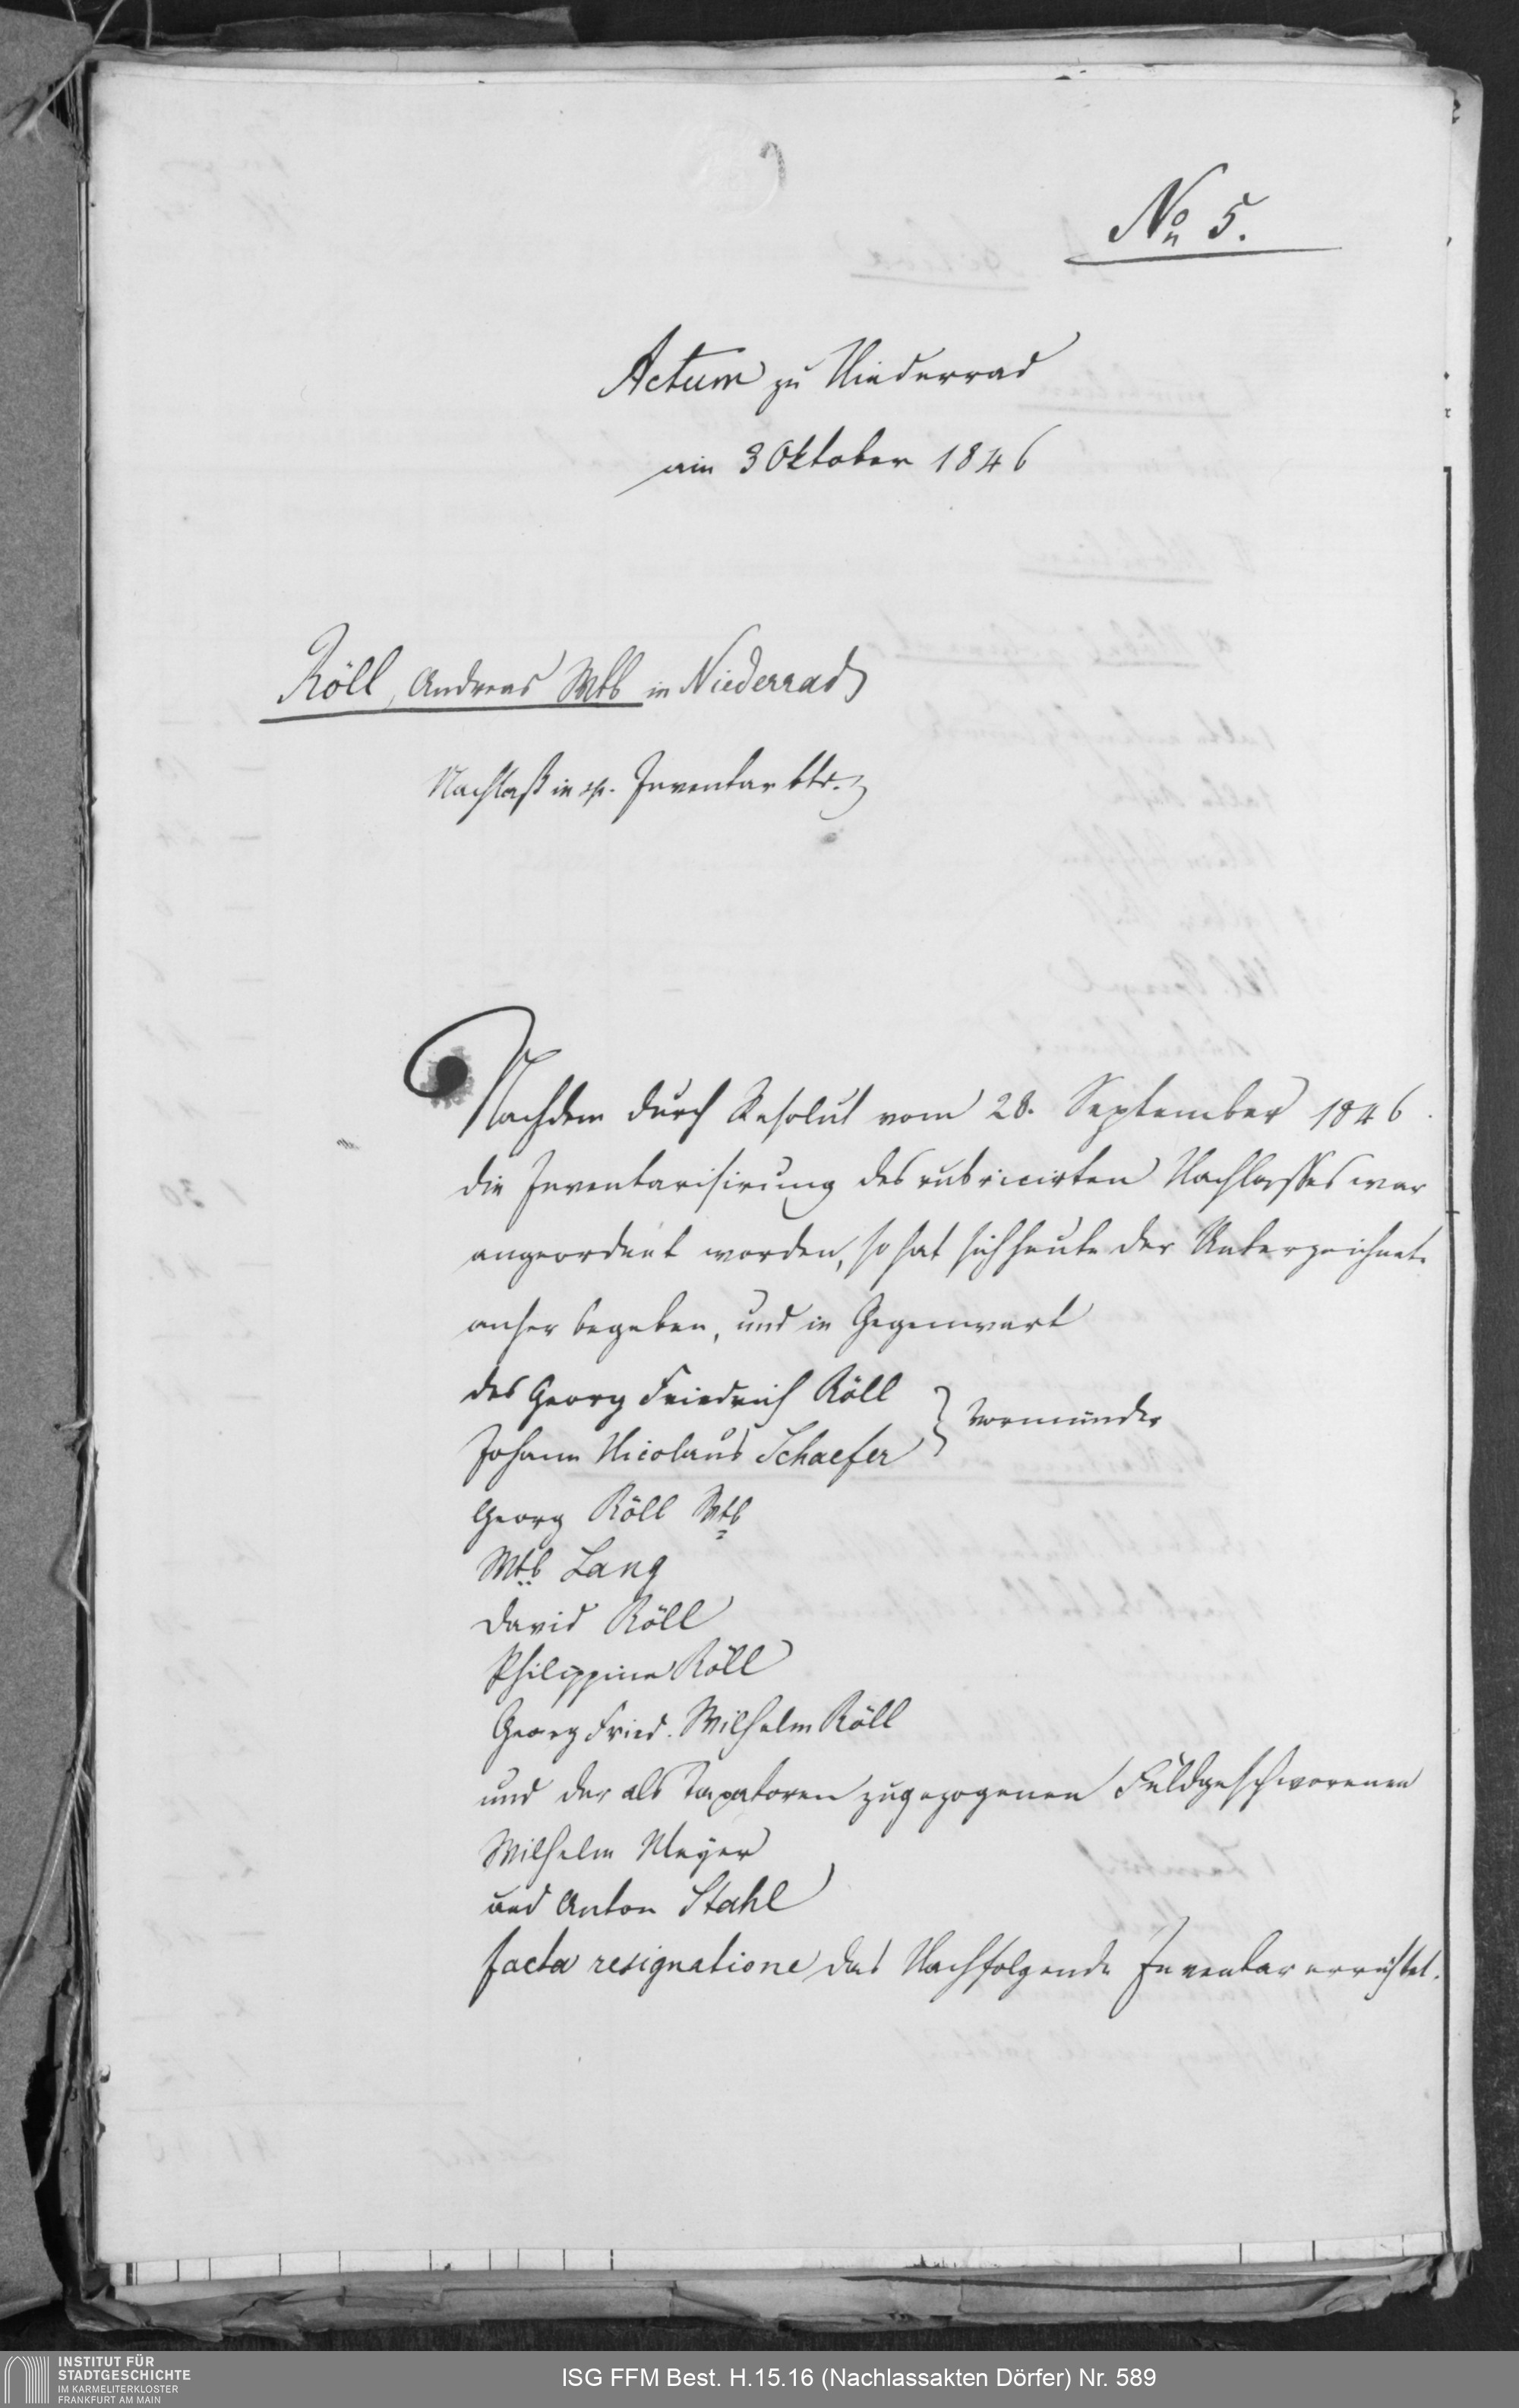 No 5.
Actum zu Niederrad
am 3 Oktober 1846
Röll, Andreas Wtb in Niederrad
Nachlaß in sp. Inventar btr.
Nachdem durch Resolut vom 28. September 1846.
die Inventarisirung des rubricirten Nachlasses war
angeordnet worden, so hat sich heute der Unterzeichnete
anher begeben, und in Gegenwart
des Georg Friedrich Röll
Johann Nicolaus Schaefer } Vormünder
Georg Röll Wtb
Wtb Lang
David Röll
Philippine Röll
Georg Fried. Wilhelm Röll
und der als Taxatoren zugezogenen Feldgeschworenen
Wilhelm Meyer
und Anton Stahl
facta resignatione das Nachfolgende Inventar errichtet.
INSTITUT FÜR
STADTGESCHICHTE
IM KARMELITERKLOSTER
FRANKFURT AM MAIN
ISG FFM Best. H.15.16 (Nachlassakten Dörfer) Nr. 589